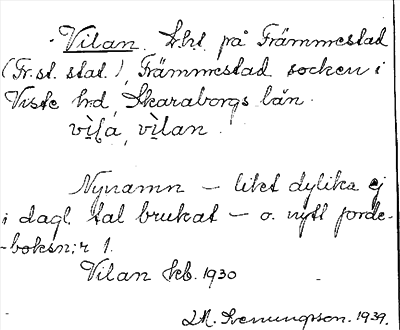 Vilan. Lht. på Främmestad
(Fr. st. stat.), Främmestad socken i
Viste hrd, Skaraborgs län.
vila, vilan.
Nynamn – likt dylika ej
i dagl. tal brukat – o. nytt jorde-
-boksn; r 1.
Vilan kb. 1930
L.M. Svenungsson. 1939.